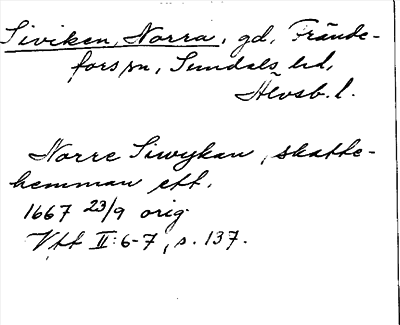 Siviken, Norra, gd, Frände-
fors sn, Sundals hd,
Älvsb. l.
Norre Siwykan, skatte-
hemman ett.
1667 23/9 orig.
Vtt II:6-7, s. 137.